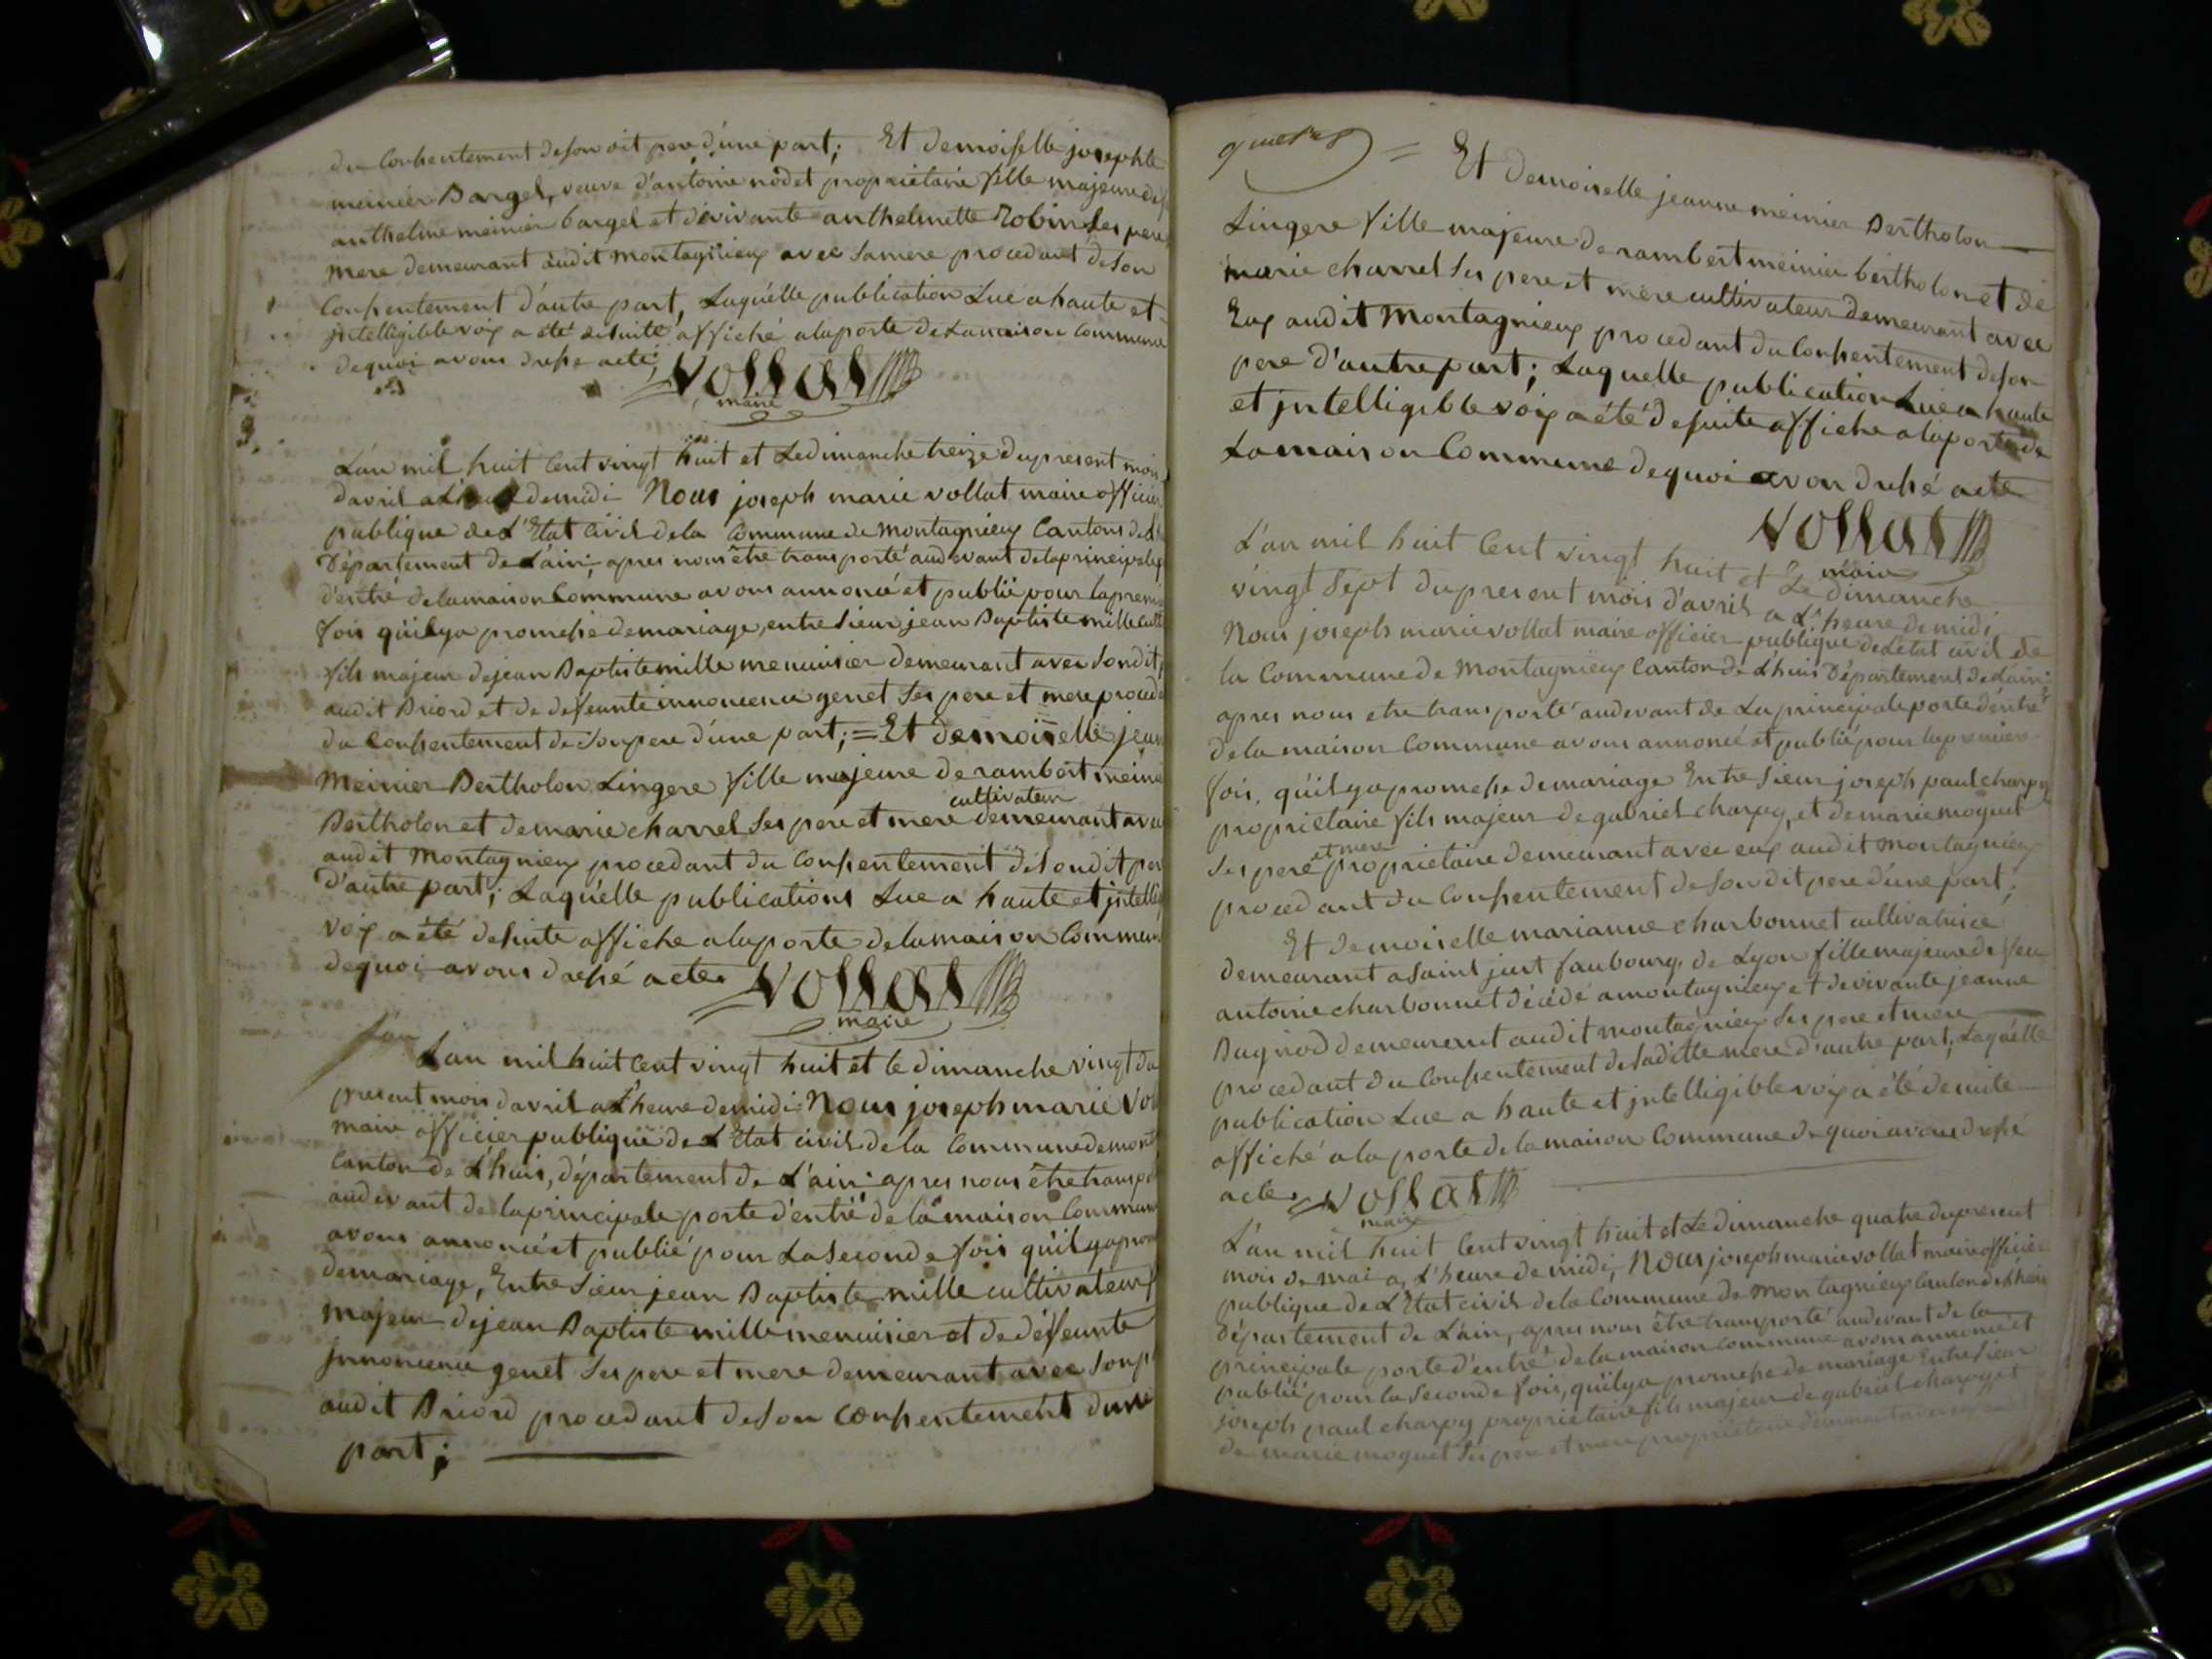 du Consentement de son dit pere d'une part; Et demoiselle josephte
meinier Bargel, veuve d'antoine nodet propriétaire fille majeure de
anthelme meinier bargel et de vivante anthelmette Robin Ses pere
mere demeurant audit Montagnieux avec sa mere procedant de son
Consentement d'autre part, Laquelle publication Lue a haute et
jntelligible voix a été desuite affiché a la porte de La maison Commune
dequoi avons dressé acte;
Vollat
maire
L'an mil huit Cent vingt huit et Le dimanche treize du present mois
d'avril a L'heure de midi Nous joseph marie vollat maire officier
publique de L'Etat Civil de la Commune de Montagnieux Cantons de
Département de L'ain, apres nous être transporté au devant de la principale
d'entré de la maison Commune avons annoncé et publié pour la premi
fois qu'il y a promesse de mariage, entre Sieur jean Baptiste mille cult
fils majeur de jean Baptiste mille menuisier demeurant avec Son dit
audit Briord et de defeunte innoncence genet Ses pere et mere procéd
du Consentement de Son pere d'une part; = Et demoiselle jean
Meinier Bertholon Lingere fille majeure de rambert meini
cultivateur
Bertholon et de marie charrel Ses pere et mere demeurant avec
audit Montagnieux procedant du Consentement de Son dit per
d'autre part; Laquelle publications Lue a haute et jntellig
voix a été desuite affiche a la porte de la maison Commun
dequoi avons dressé acte.
Vollat
maire
L'an
L'an mil huit Cent vingt huit et le dimanche vingt du
present mois d'avril a L'heure de midi Nous joseph marie Vol
maire officier publique de L'Etat civil de la Commune de mont
Canton de L'huis, département de L'ain apres nous être transpo
au devant de la principale porte d'entré de la maison Commun
avons annoncé et publié pour La Seconde fois qu'il y a prom
de mariage, Entre Sieur jean Baptiste mille cultivateur f
majeur de jean Baptiste mille menuisier et de déffeunte
jnnoncence genet Ses pere et mere demeurant avec Son p
audit Briord procedant de Son Consentement d'une
part;
= Et demoiselle jeanne meinier Bertholon
Lingere fille majeure de rambert meinier bertholon et de
marie charrel Ses pere et mere cultivateur demeurant avec
Eux audit Montagnieux procedant du Consentement de Son
pere d'autre part; Laquelle publication Lue a haute
et jntelligible voix a été desuite affiche a la porte de
La maison Commune dequoi avon dressé acte
Vollat
maire
L'an mil huit Cent vingt huit et Le dimanche
vingt Sept du present mois d'avril a L'heure de midi
Nous joseph marie vollat maire officier publique de L'état civil de
la Commune de Montagnieux Canton de L'huis Département de L'ain
apres nous etre transporté au devant de La principale porte d'entré
de la maison Commune avons annoncé et publié pour la premiere
fois, qu'il y a promesse de mariage Entre Sieur joseph paul charpy
propriétaire fils majeur de gabriel charpy, et de marie moguet
et mere
Ses pere propriétaire demeurant avec eux audit montagnieux
procedant du Consentement de Son dit pere d'une part;
Et demoiselle marianne charbonnet cultivatrice
demeurant a Saint just faubourg de Lyon fille majeure de feu
antoine charbonnet décédé a montagnieux et de vivante jeanne
Bugnod demeurent audit montagnieux Ses pere et mere
procedant du Consentement de Saditte mere d'autre part; Laquélle
publication Lue a haute et jntelligible voix a été de suite
affiché a la porte de la maison Commune de quoi avons dressé
acte. Vollat
maire
L'an mil huit Cent vingt huit et Le dimanche quatre du present
mois de mai a L'heure de midi, Nous joseph marie vollat maire officier
publique de L'Etat civil de la Commune de Montagnieux Canton de L'huis
Département de L'ain, apres nous être transporté au devant de la
principale porte d'entré de la maison Commune avons annoncé et
publié pour la Seconde fois, qu'il y a promesse de mariage Entre Sieur
joseph paul charpy propriétaire fils majeur de gabriel charpy et
de marie moguet Ses pere et mere propriétaire demeurant avec